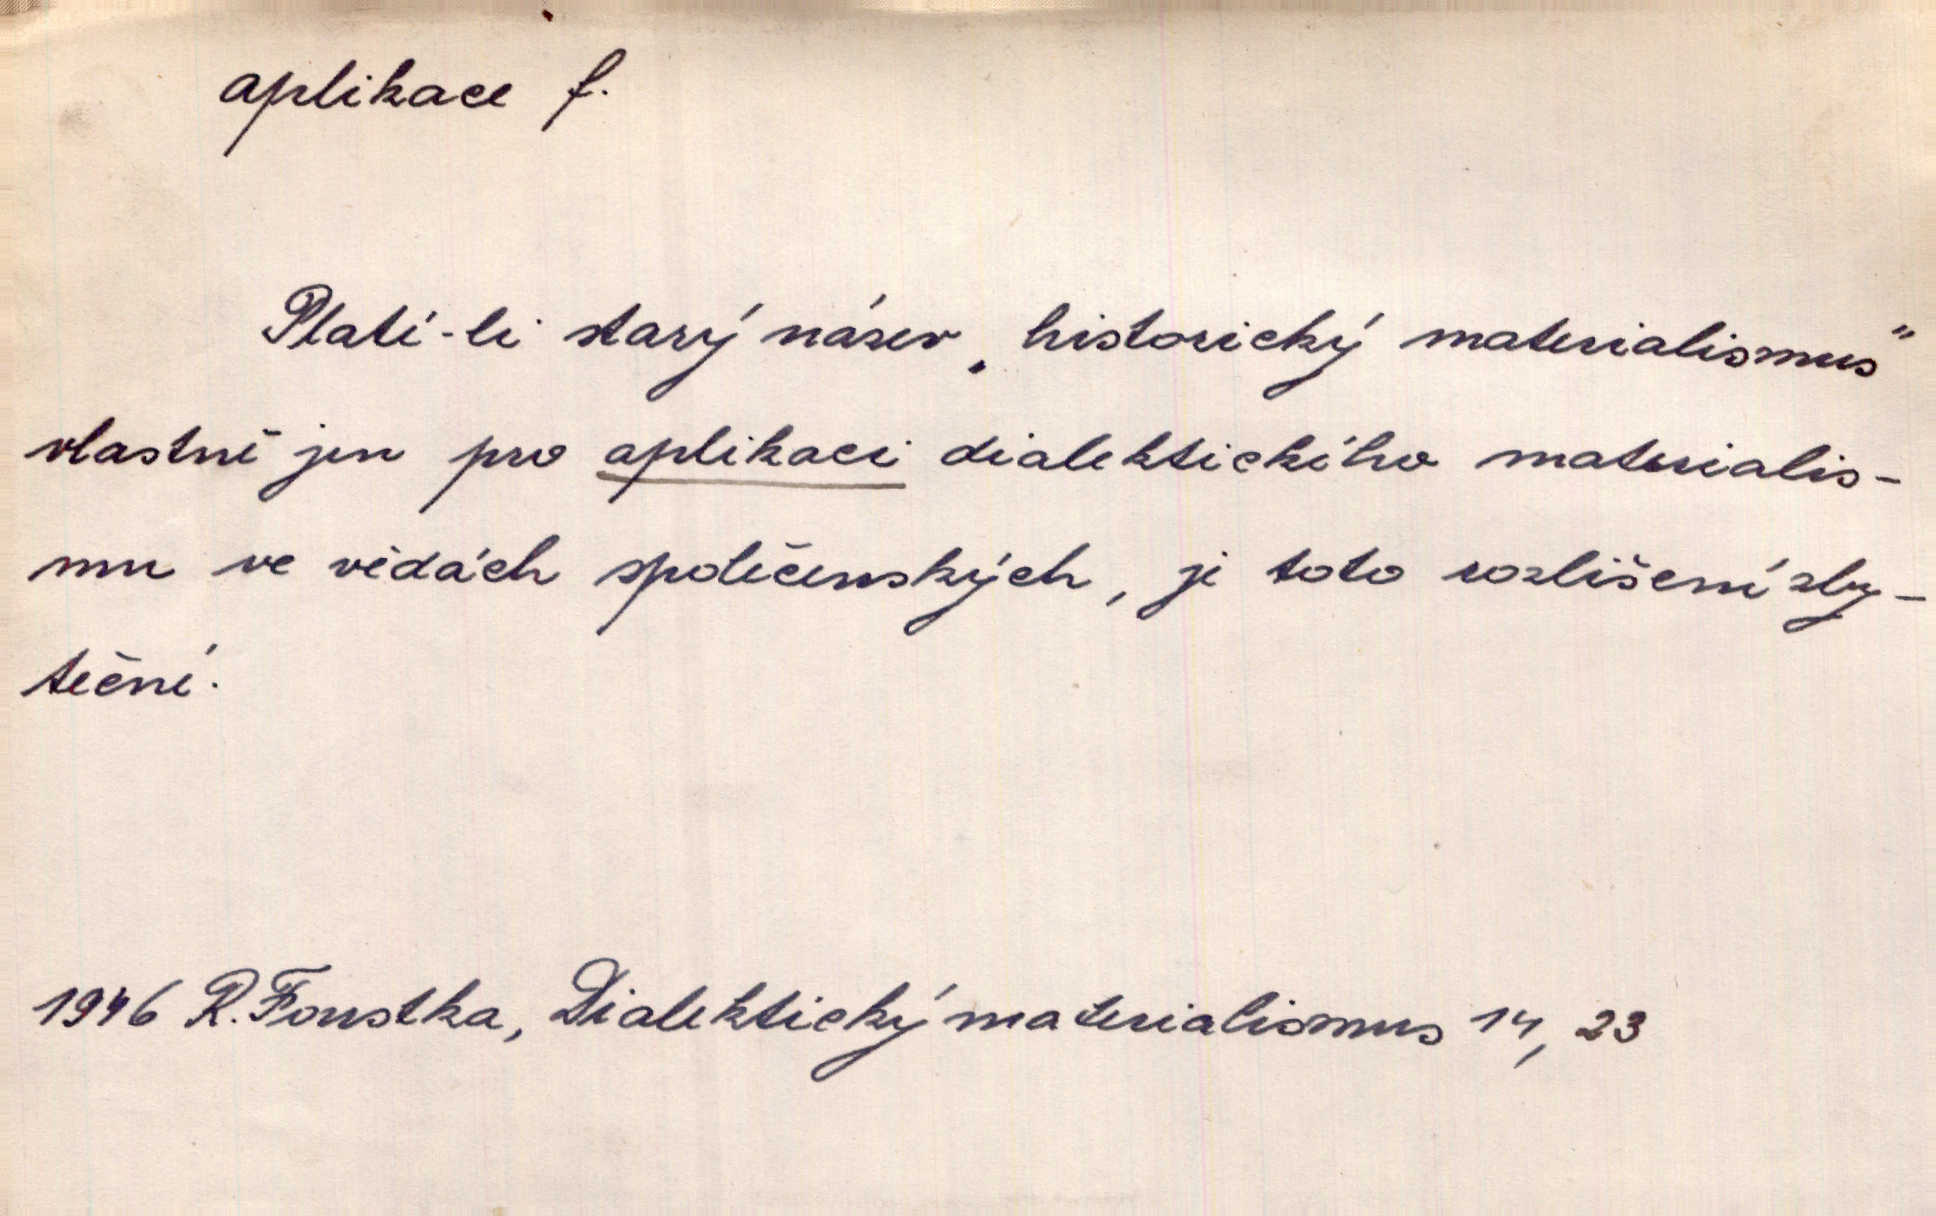 aplikace f.
Platí-li starý název „historický materialismus"
vlastně jen pro aplikaci dialektického materialis-
mu ve vědách společenských, je toto rozlišení zby-
tečné.
1946 R. Foustka, Dialektický materialismus 14, 23